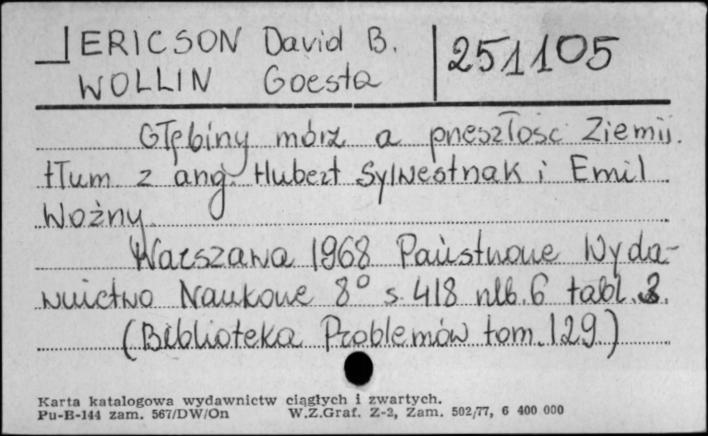 ERICSON David B.
WOLLIN Goesta
251105
Głębiny mórz a przeszłość Ziemi.
tłum z ang. Hubert Sylwestrzak i Emil
Woźny.
Warszawa 1968 Państwowe Wyda-
wnictwo Naukowe 8° s. 418 nlb. 6 tabl. 3.
(Biblioteka Problemów tom. 129.)
Karta katalogowa wydawnictw ciągłych i zwartych.
Pu-B-144 zam. 567/DW/On W.Z.Graf. Z-2, Zam. 502/77, 6 400 000